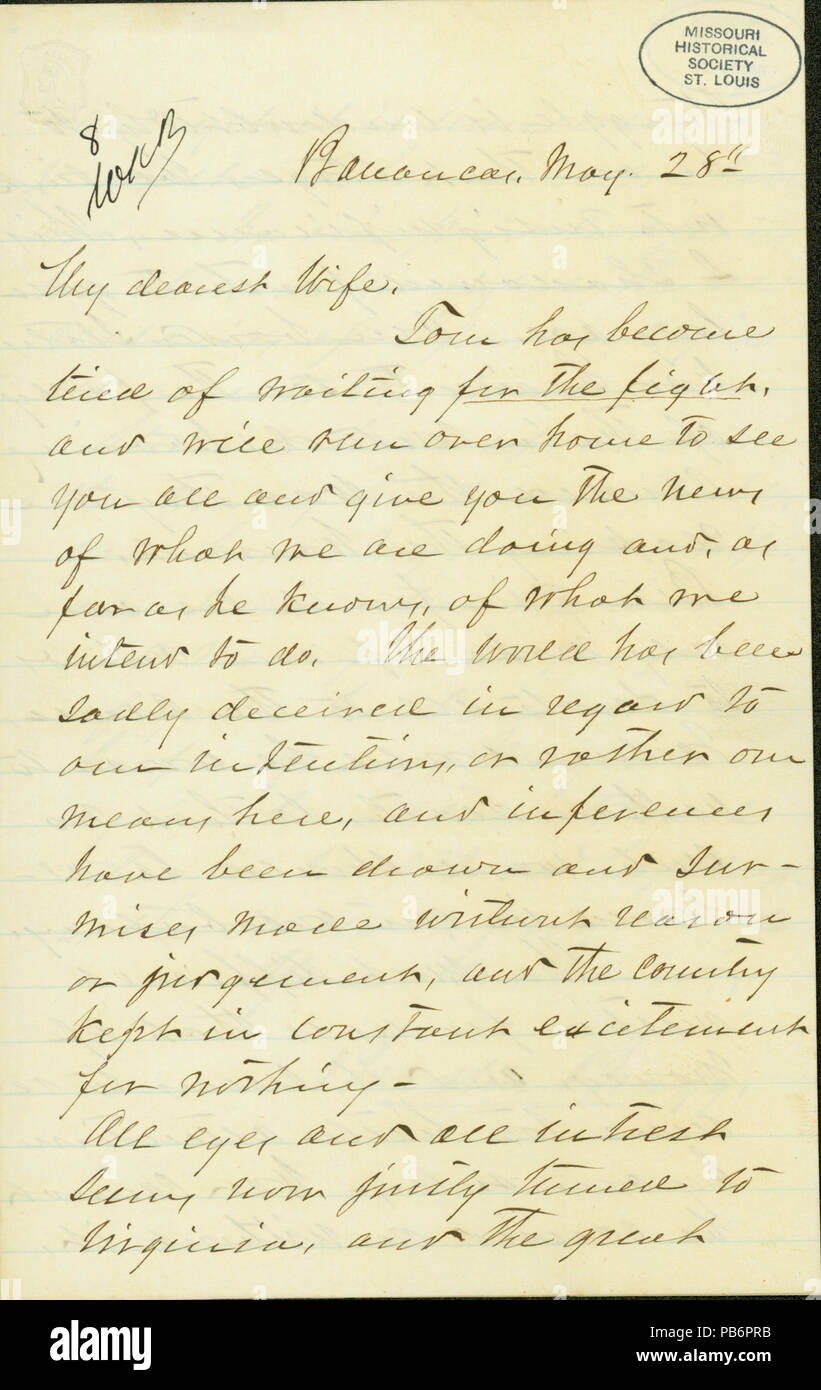 MISSOURI
HISTORICAL
SOCIETY
ST. LOUIS
8
Barancas, May. 28th
My dearest Wife,
Tom has become
tired of waiting for the fight,
and will run over home to see
you all and give you the news
of what we are doing and, as
far as he knows, of what we
intend to do. The world has been
sadly deceived in regard to
our intentions, or rather our
means here, and inferences
have been drawn and sur-
mises made without reason
or judgement, and the country
kept in constant excitement
for nothing -
All eyes and all intrest
seems now justly turned to
Virginia, and the great
alamy
alamy
www.alamy.com
PB6PRB